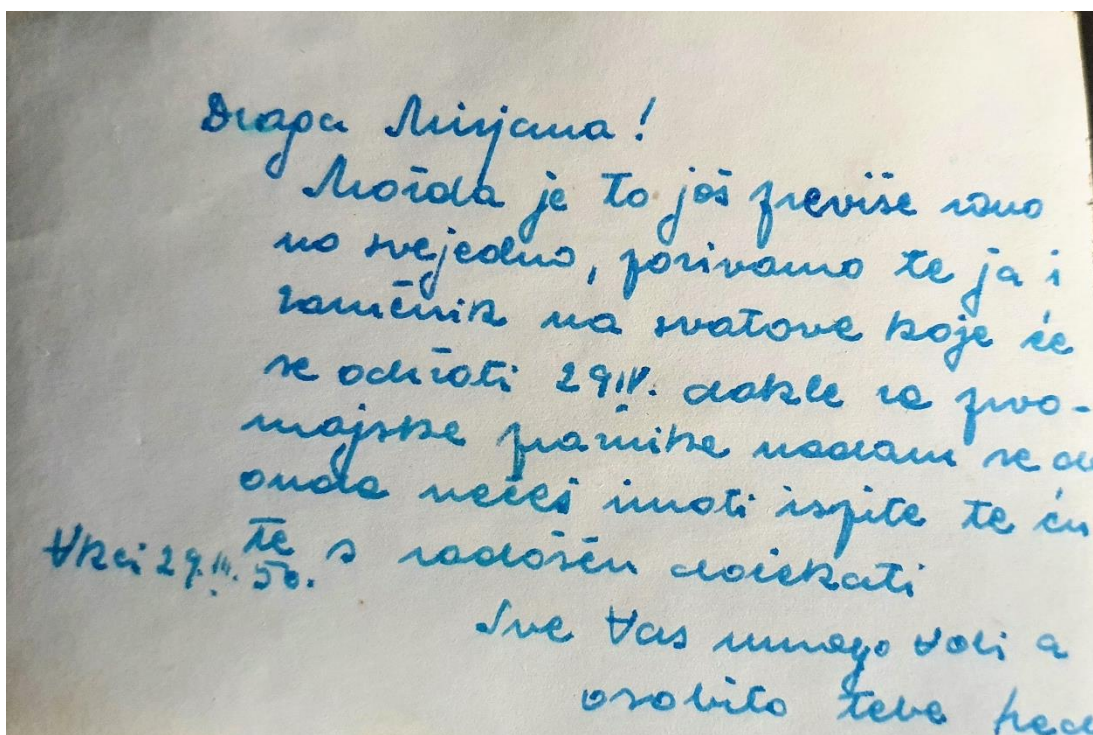 Draga Mirjana!
Možda je to još previše rano
no svejedno, pozivamo te ja i
zaručnik na svatove koje će
se održati 29.IV. dakle za prvo-
majske praznike nadam se da
onda nećeš imati ispite te ću
te s radošću dočekati
29.III.50.
Sve Vas mnogo voli a
osobito tebe